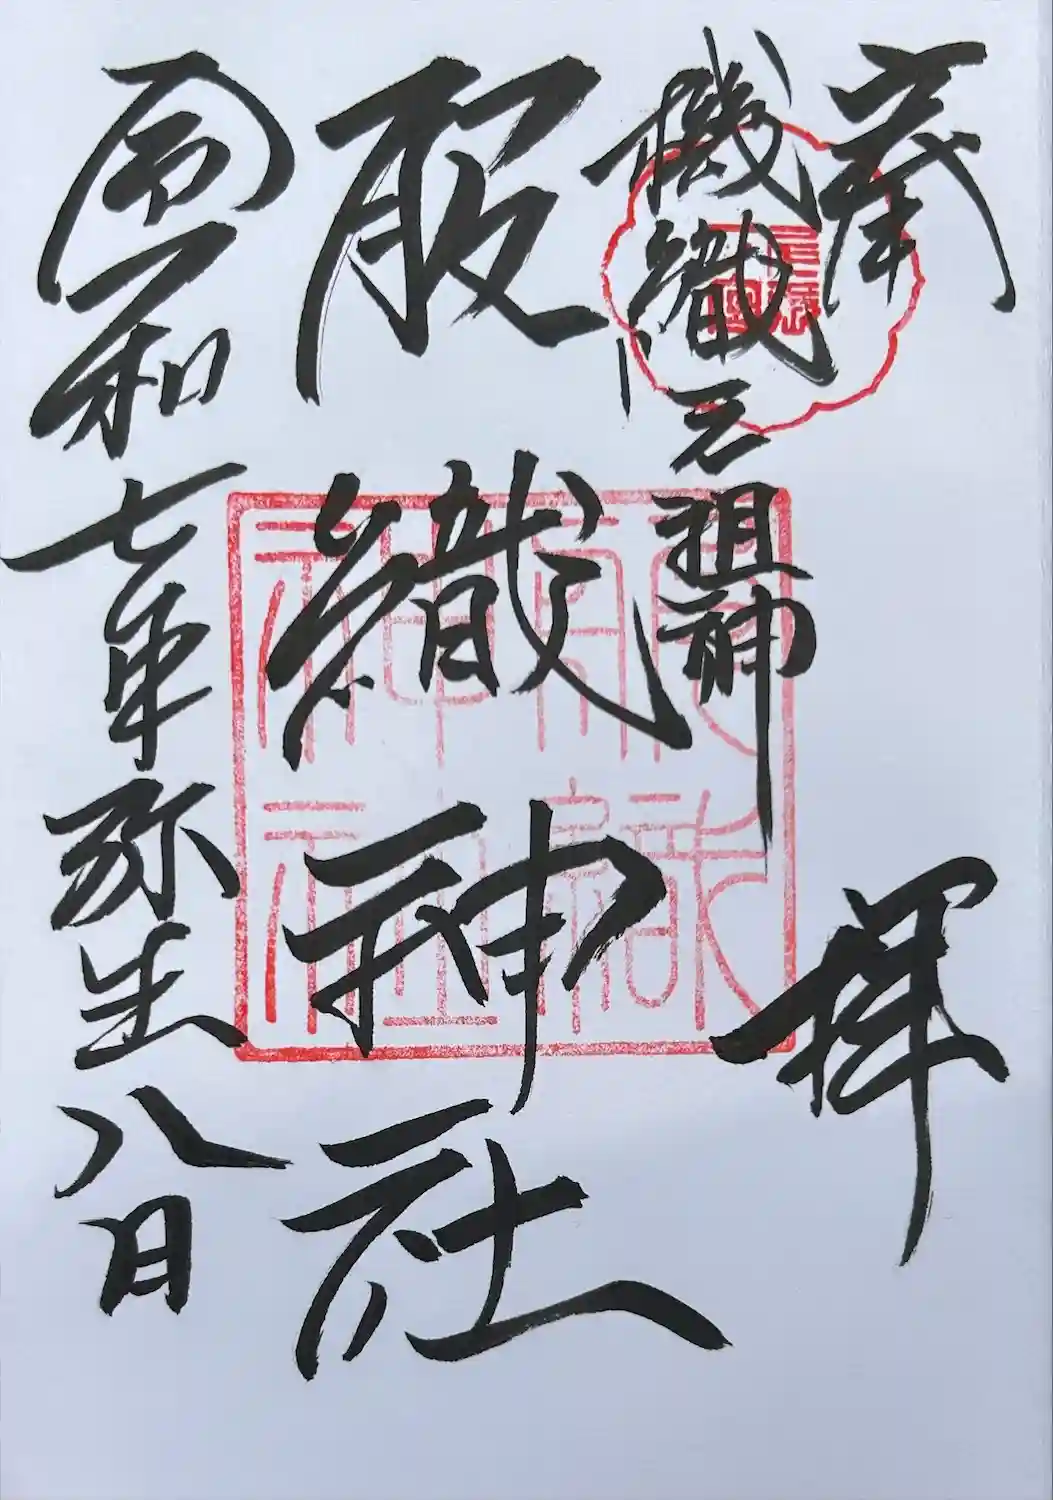 奉拝
機織之祖神
服織神社
令和七年弥生八日
服織
神社